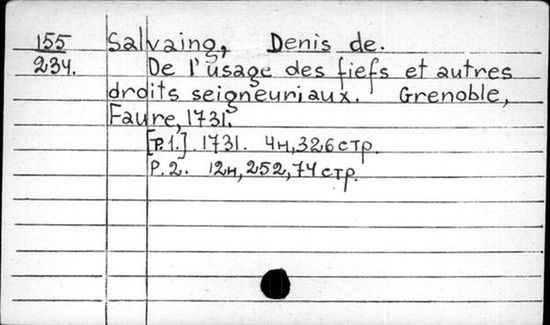 155 Salvaing, Denis de.
234. De l'usage des fiefs et autres
droits seigneuriaux. Grenoble,
Faure, 1731.
[P.1.] 1731. 4н, 326 стр.
P.2. 12н, 252, 74 стр.